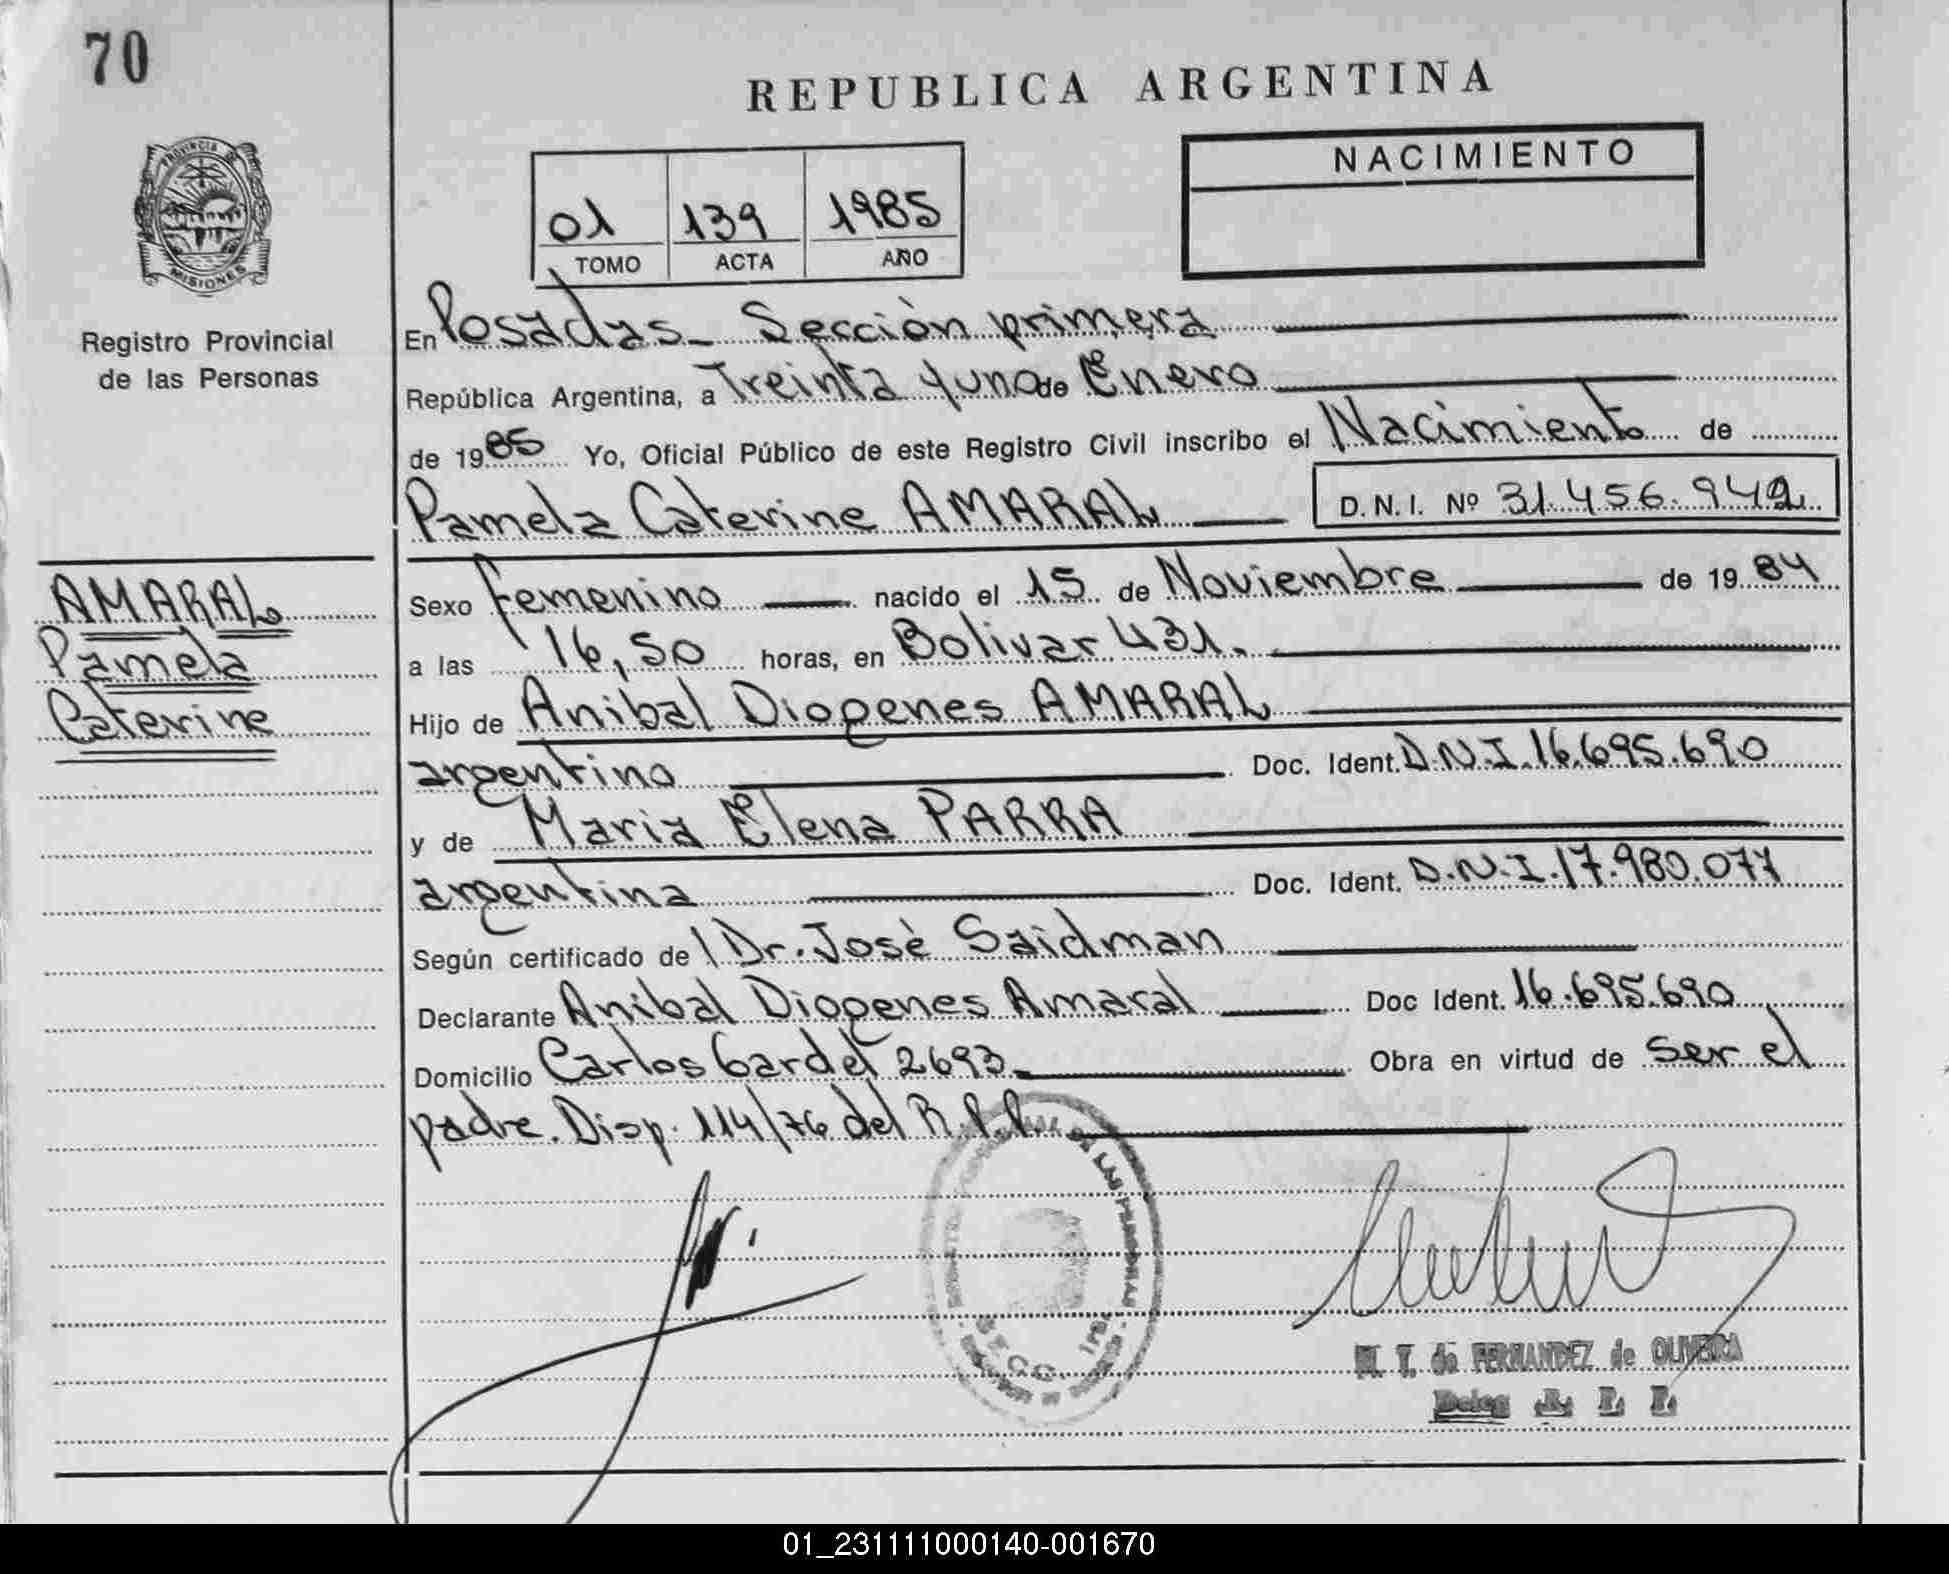 70
REPUBLICA ARGENTINA
PROVINCIA DE
MISIONES
Registro Provincial
de las Personas
01 139 1985
TOMO ACTA AÑO
NACIMIENTO
En Posadas - Sección primera
República Argentina, a Treinta y uno de Enero
de 1985 Yo, Oficial Público de este Registro Civil inscribo el Nacimiento de
Pamela Caterine AMARAL D.N.I. Nº 31.456.942
AMARAL
Pamela
Caterine
Sexo Femenino nacido el 15 de Noviembre de 1984
a las 16,50 horas, en Bolivar 431.
Hijo de Anibal Diogenes AMARAL
argentino Doc. Ident. D.N.I. 16.695.690
y de Maria Elena PARRA
argentina Doc. Ident. D.N.I. 17.980.077
Según certificado de Dr. José Saidman
Declarante Anibal Diogenes Amaral Doc Ident. 16.695.690
Domicilio Carlos Gardel 2693 Obra en virtud de ser el
padre. Disp. 114/76 del R.P.P.
LAS PERSONAS
M. T. de FERNANDEZ de OLIVEIRA
Deleg R. P. P.
01_231111000140-001670